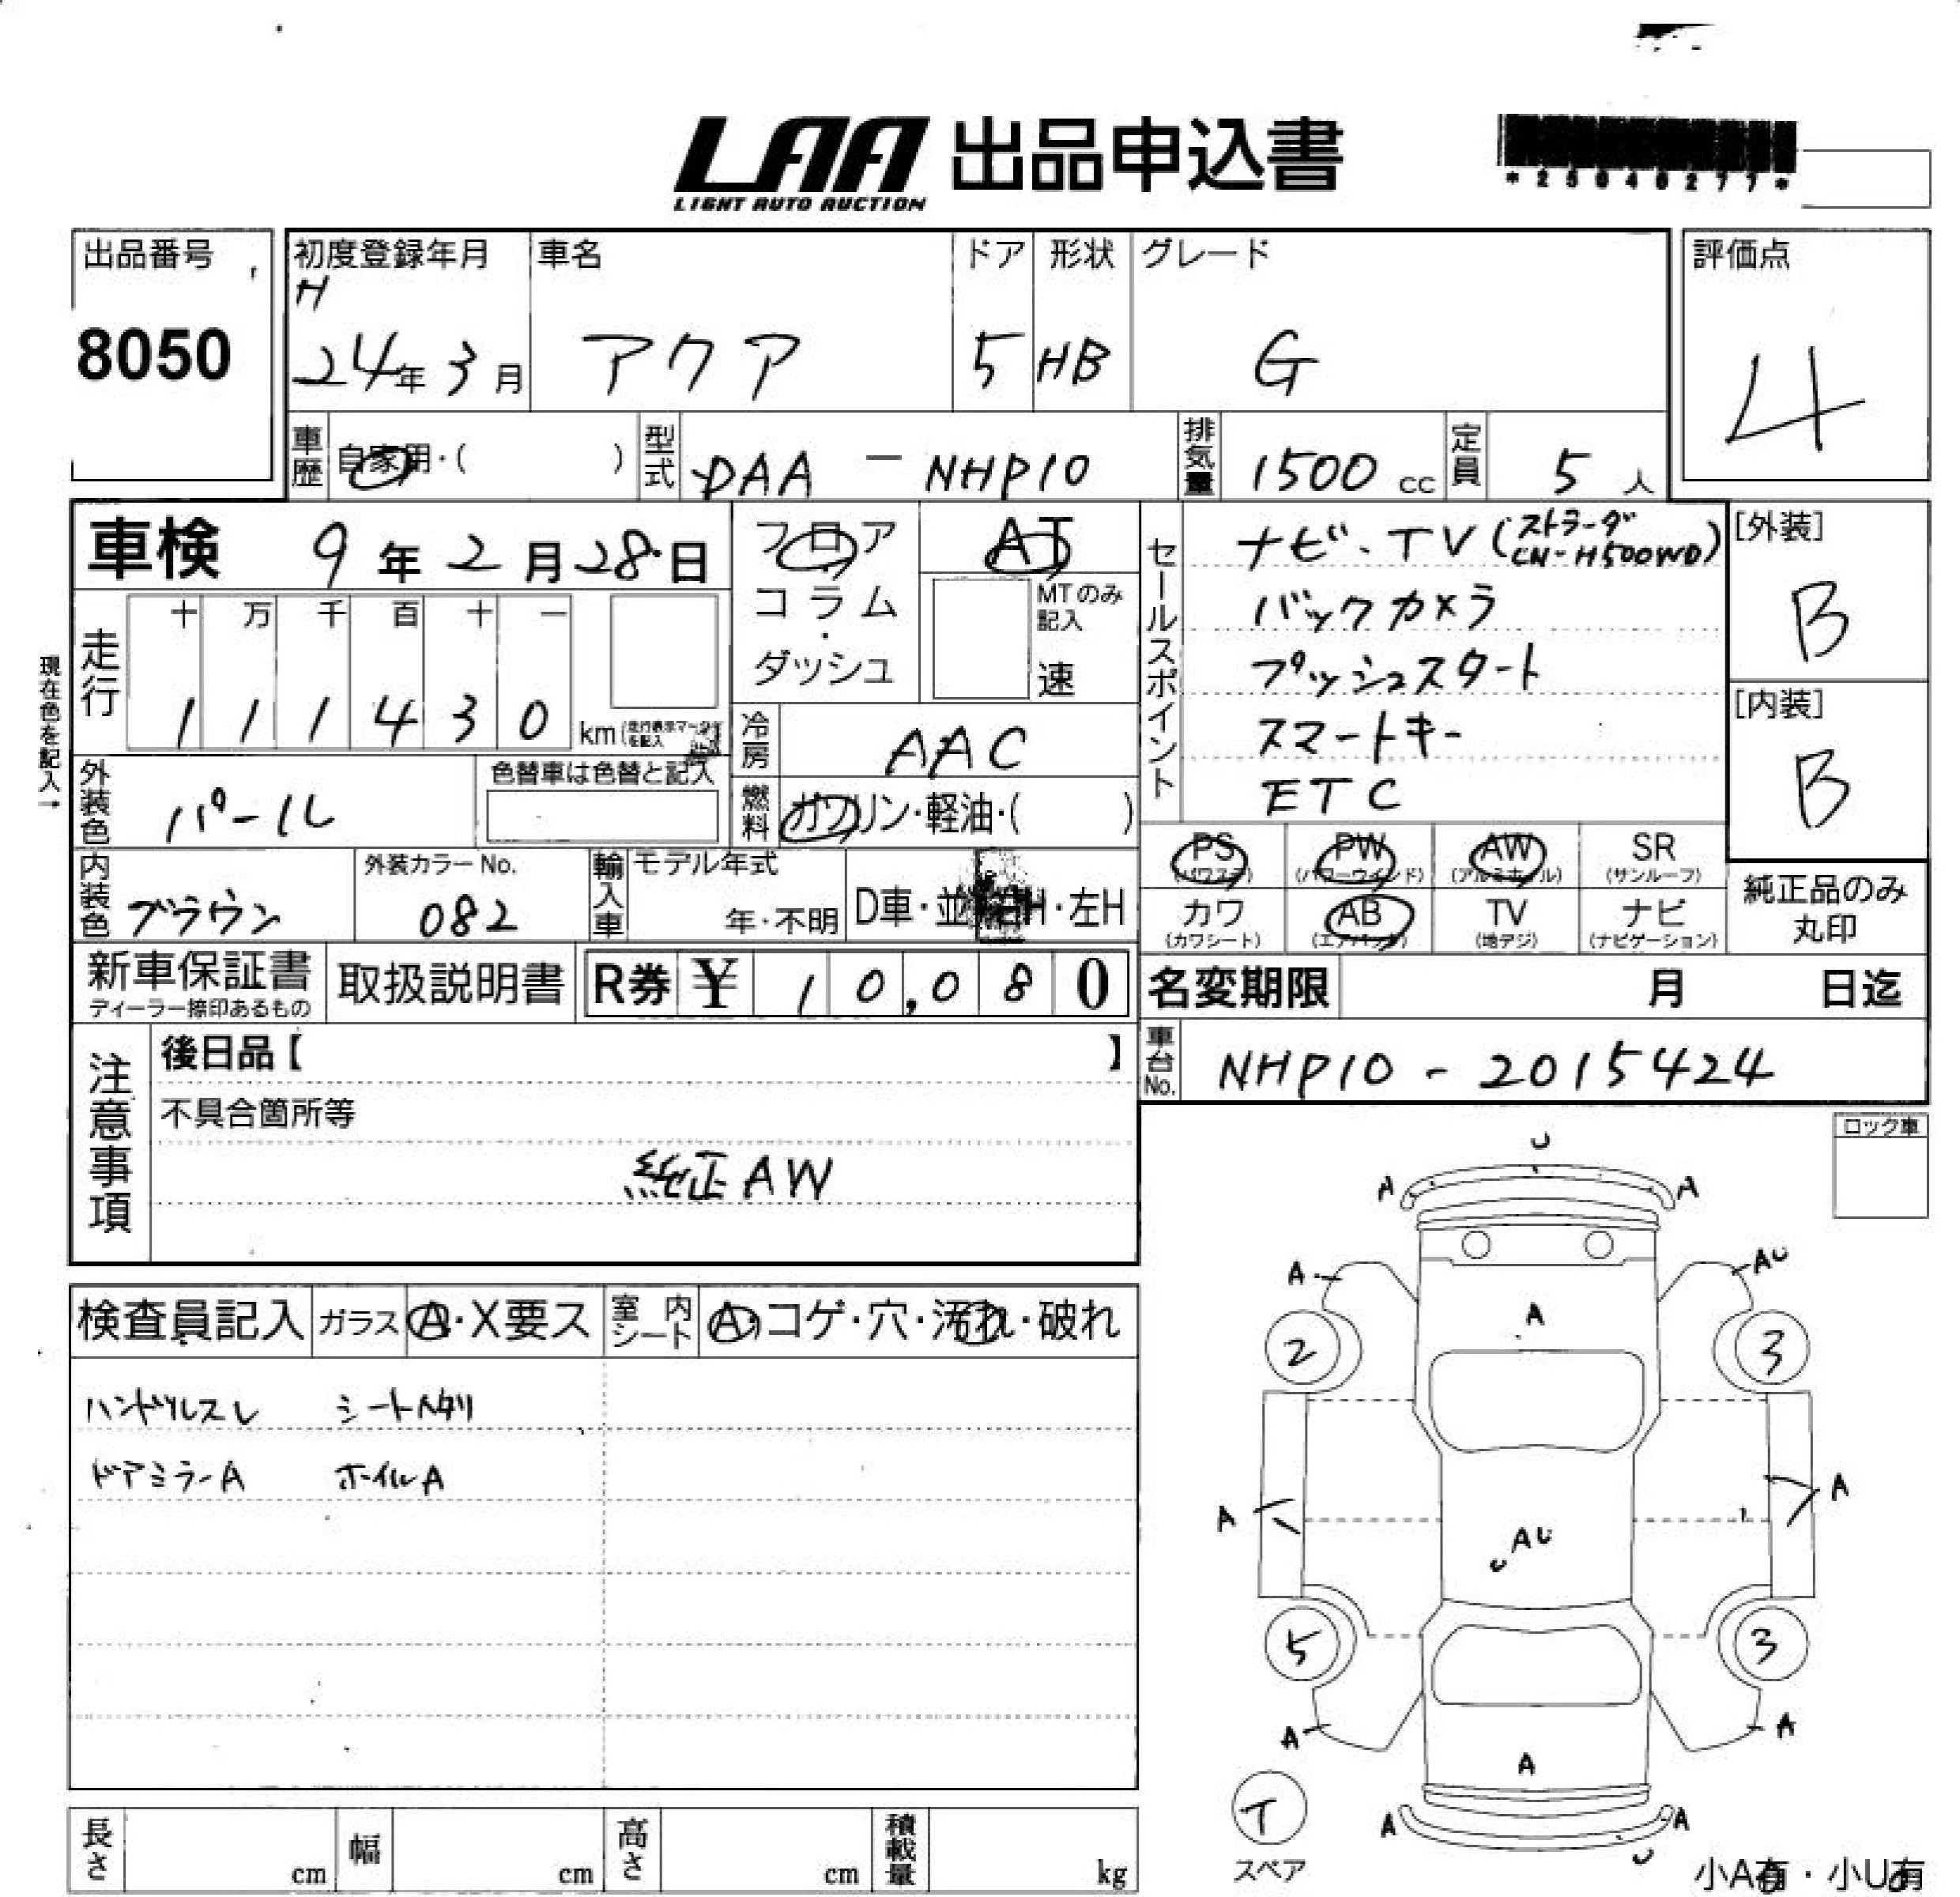 LAA 出品申込書
LIGHT AUTO AUCTION
*25040277*
出品番号
8050
初度登録年月
H
24年3月
車名
アクア
ドア
5
形状
HB
グレード
G
評価点
4
車歴
自家用・( )
型式
DAA - NHP10
排気量
1500 cc
定員
5 人
車検 9年2月28日
フロア
コラム
・
ダッシュ
AT
MTのみ
記入
速
セールスポイント
ナビ・TV(ストラーダ
CN-H500WD)
バックカメラ
プッシュスタート
スマートキー
ETC
[外装]
B
[内装]
B
現在色を記入→
走行
十 万 千 百 十 一
1 1 1 4 3 0 km
冷房
AAC
外装色
パール
色替車は色替と記入
燃料
ガソリン・軽油・( )
PS
(パワステ)
PW
(パワーウインド)
AW
(アルミホイル)
SR
(サンルーフ)
カワ
(カワシート)
AB
(エアバッグ)
TV
(地デジ)
ナビ
(ナビゲーション)
純正品のみ
丸印
内装色
ブラウン
外装カラーNo.
082
輸入車
モデル年式
年・不明
D車・並
H・左H
新車保証書
ディーラー捺印あるもの
取扱説明書
R券 ¥ 10,080
名変期限 月 日迄
車台No.
NHP10 - 2015424
注意事項
後日品【 】
不具合箇所等
純正AW
ロック車
検査員記入
ガラス A・X要ス
室内シート A・コゲ・穴・汚れ・破れ
ハンドルスレ シートヘタリ
ドアミラーA ホイルA
U
A A
A AU
A
2 3
A A
AU
U
5 3
A A
A
T
スペア
A A
U
小A有・小U有
長さ cm
幅 cm
高さ cm
積載量 kg